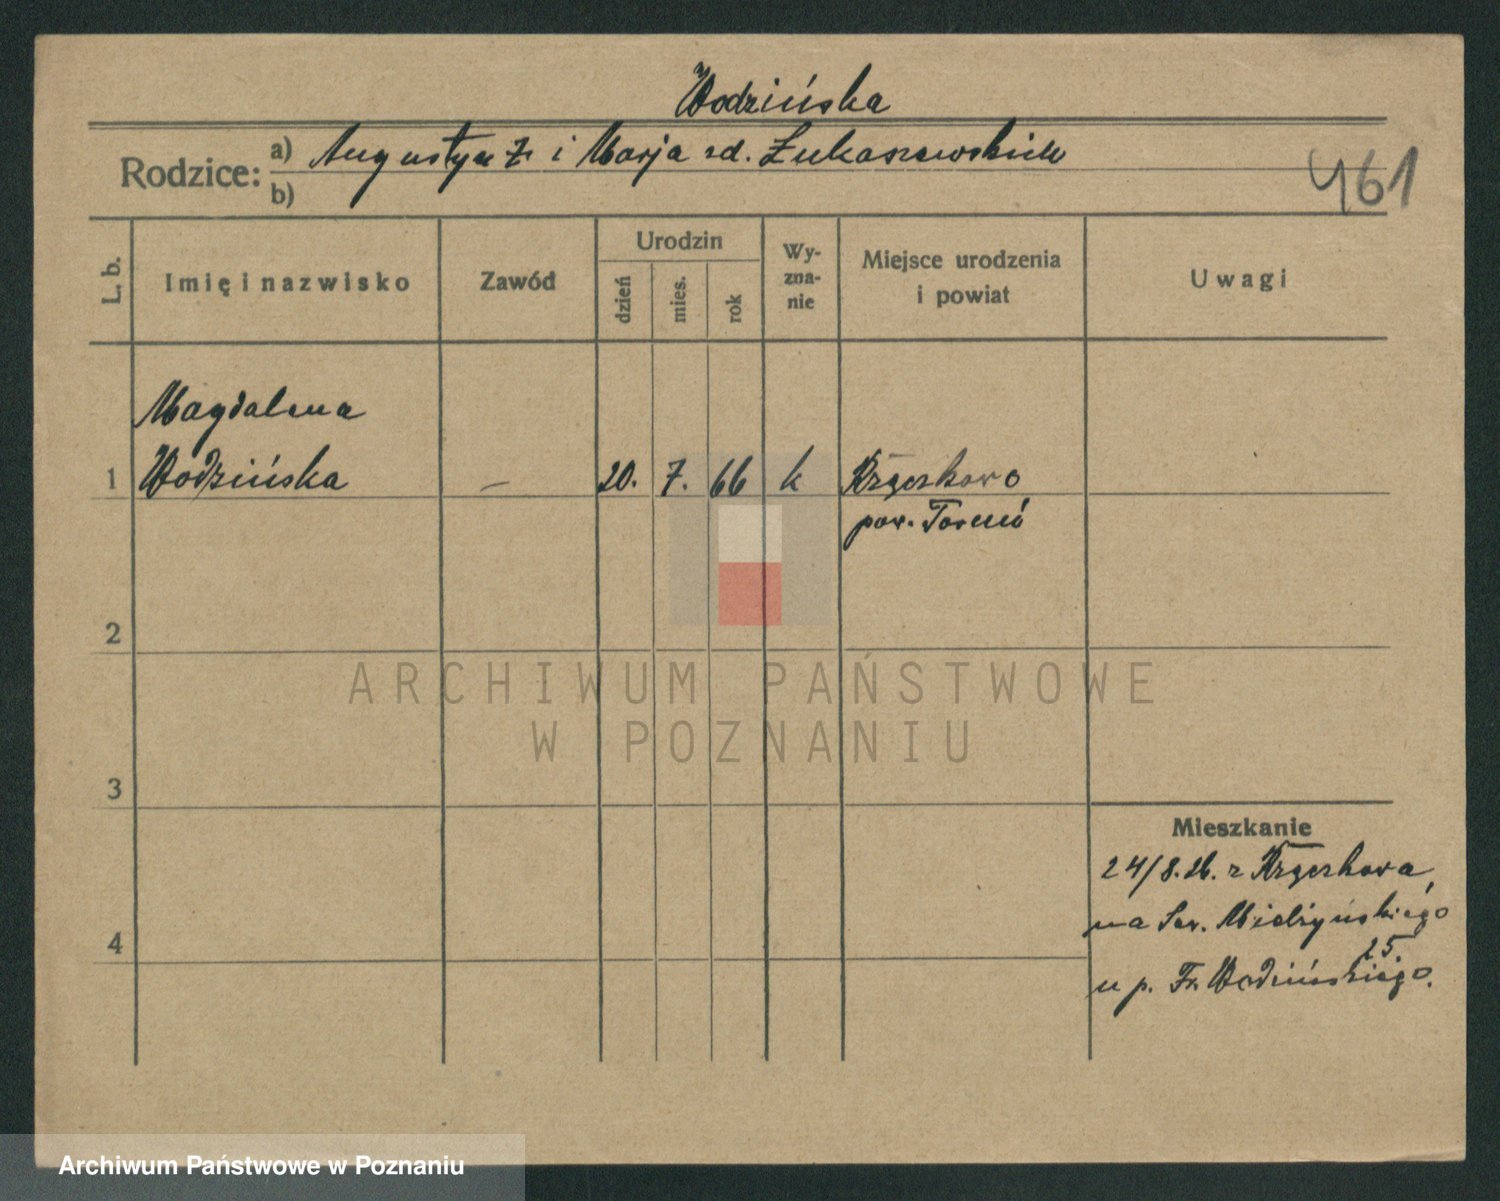 Wodzińska
Rodzice: a) Augustyn Ż i Marja zd. Łukaszewskich
b)
461
L. b.
Imię i nazwisko
Zawód
Urodzin
dzień
mies.
rok
Wy-
zna-
nie
Miejsce urodzenia
i powiat
Uwagi
Magdalena
1 Wodzińska — 20. 7. 66 k Krzęczkowo
pow. Toruń
2
3
4
Mieszkanie
24/8.26. z
na Sew. Mielżyńskiego
25.
u p. Fr. Wodzińskiego.
ARCHIWUM PAŃSTWOWE
W POZNANIU
Archiwum Państwowe w Poznaniu